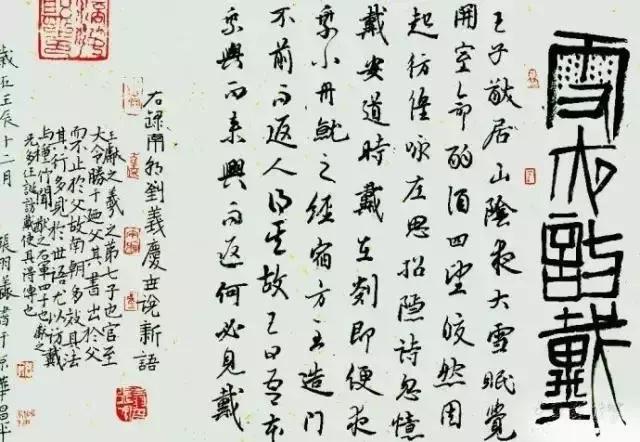 雪夜訪戴
王子敬居山陰夜大雪眠覺
開室命酌酒四望皎然因
起彷徨詠左思招隱詩忽憶
戴安道時戴在剡即便夜
乘小舟就之經宿方至造門
不前而返人問其故王曰吾本
乘興而来興而返何必見戴
右録南朝劉義慶世說新語
王獻之羲之第七子也官至
大令勝于廼父其書出於父
而不止於父故南朝多效其法
其行多見於世語尤以訪戴
與種竹聞之右軍四子也獻之
兄多任誕訪戴使其得傳也
歲在壬辰十二月 張羽書于京華昌平